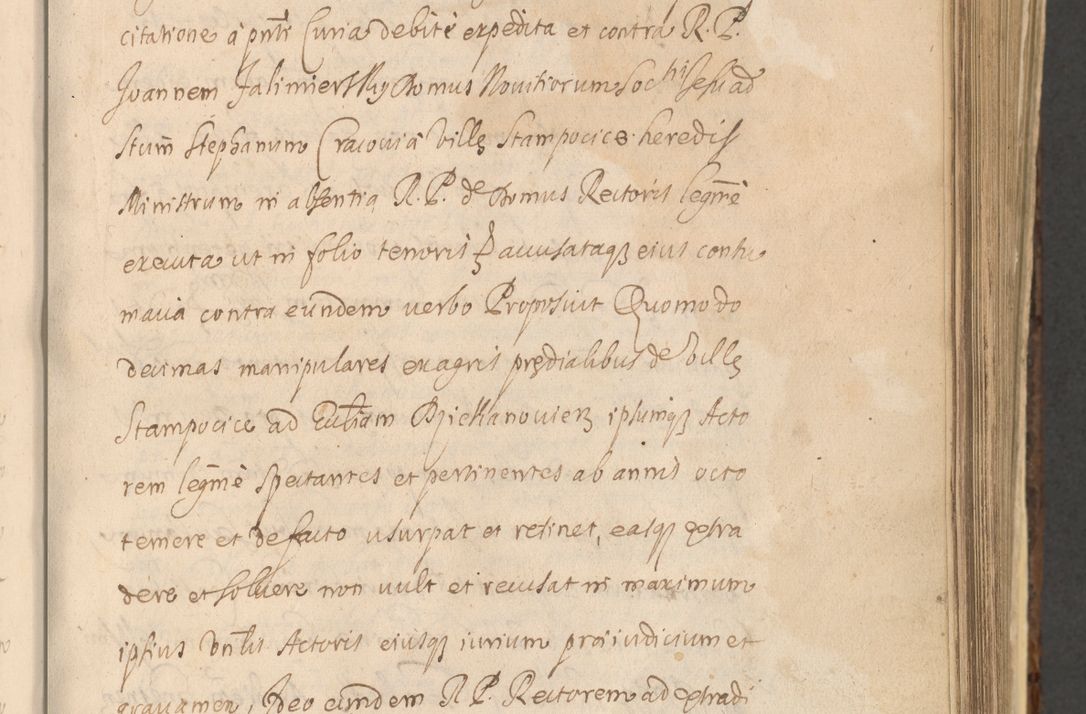 citatione à pnti Curia debitè expedita et contra R. P.
Joannem Jalimierskky Domus Novitiorum Soctis Jesu ad
Stum Stephanum Cracoviæ villę Stampocice heredis
Ministrum in absentia R. P. de Domus Rectoris legmè
executa ut in folio tenoris accusataqꝫ eius contu
macia contra eundem verbo Proposuit Quomodo
decimas manipulares ex agris prędialibus de villę
Stampocice ad Ecclam ipsumqꝫ Acto
rem legmè spectantes et pertinentes ab annis octo
temere et de facto usurpat et retinet, easqꝫ extra
dere et solvere non vult et recusat in maximum
ipsius Vnlis Actoris eiusqꝫ iurium præiudicium et
gravamen, Ideo eundem R P. Rectorem ad extradi